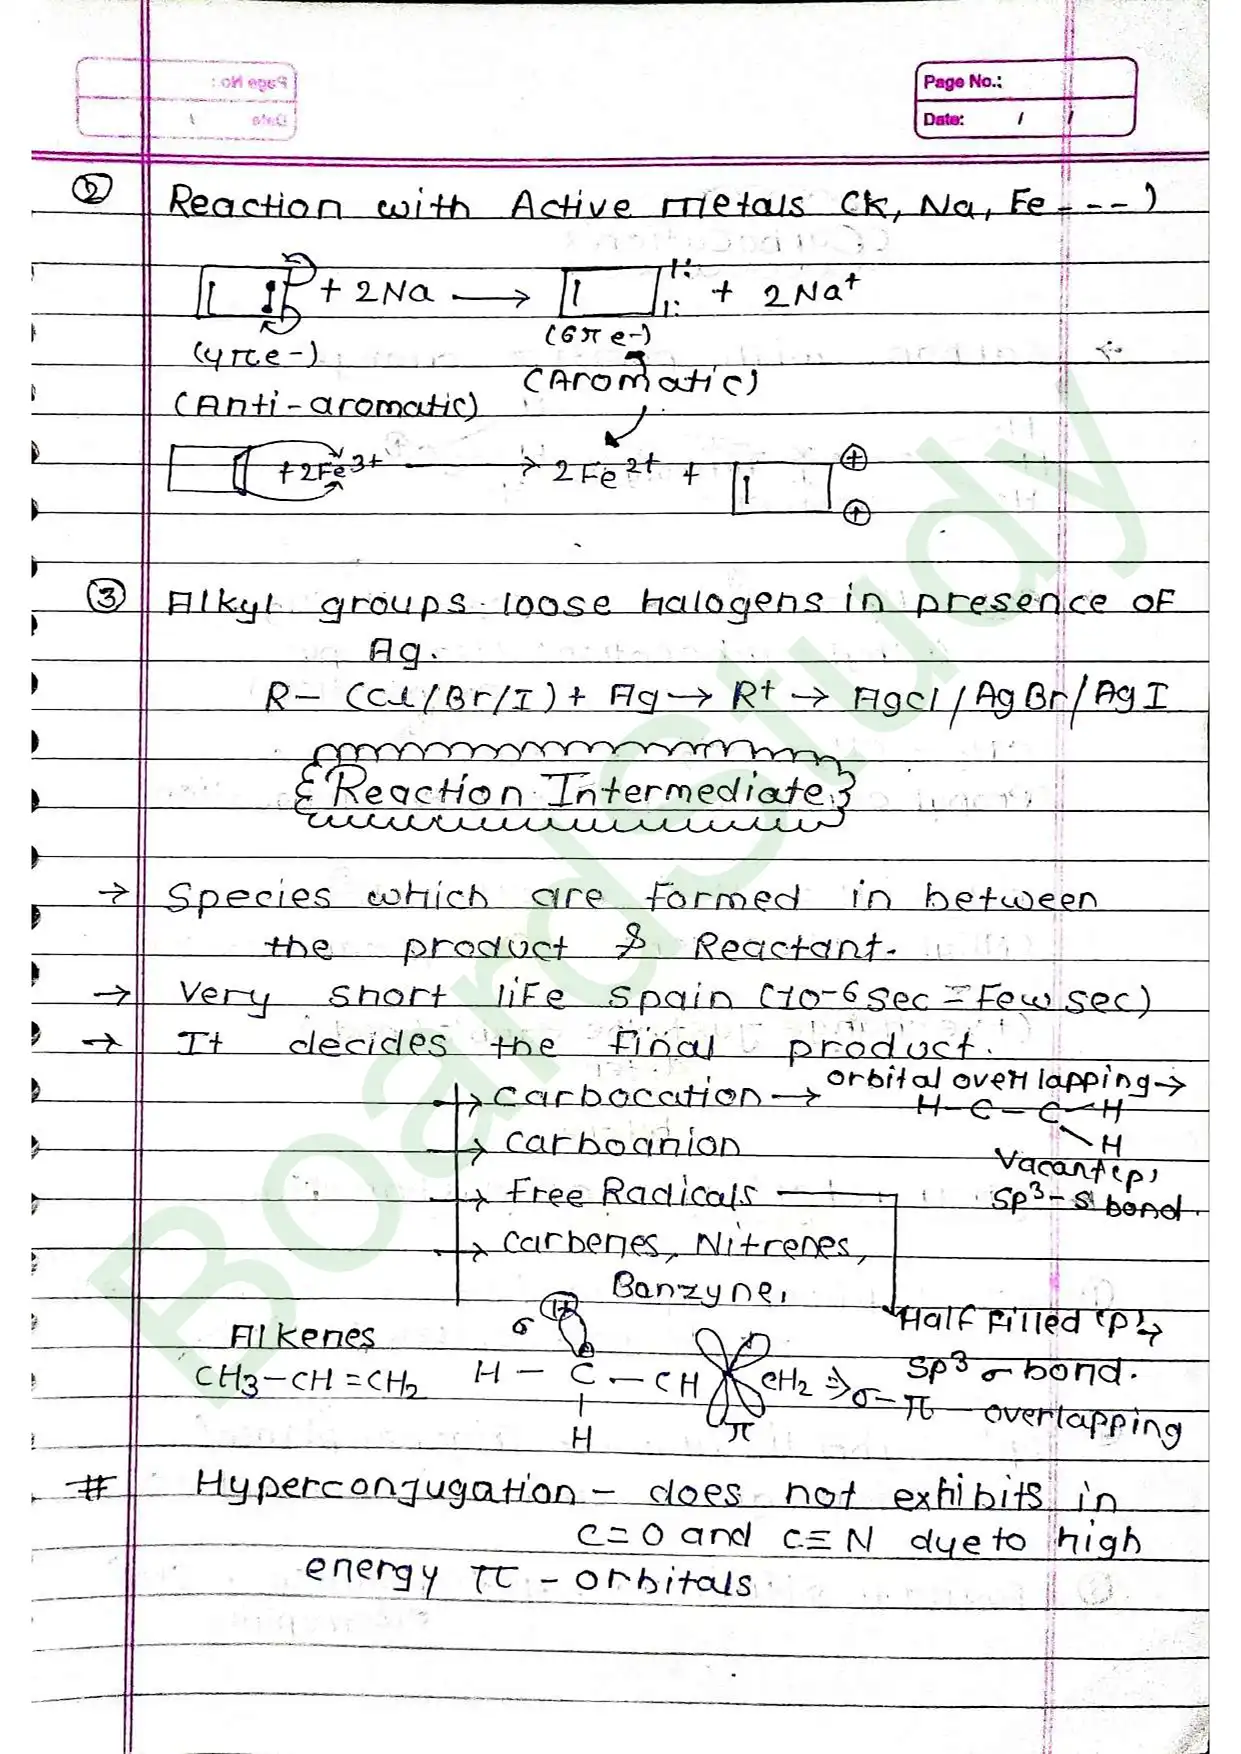 Page No.:
Date: / /
② Reaction with Active metals (K, Na, Fe - - -)
+ 2Na → + 2Na⁺
(4π e-) (6π e-)
(Anti-aromatic) (Aromatic)
+ 2Fe³⁺ → 2Fe²⁺ + ⊕ ⊕
③ Alkyl groups loose halogens in presence of
Ag.
R - (Cl/Br/I) + Ag → R⁺ → AgCl/AgBr/AgI
Reaction Intermediate
→ Species which are formed in between
the product & Reactant.
→ Very short life spain (10-6 sec = Few sec)
→ It decides the final product.
→ Carbocation → orbital overlapping →
H - C - C - H
H
Vacant 'p'
sp³ - s bond.
→ Carboanion
→ Free Radicals
→ Carbenes, Nitrenes,
Banzyne,
Half Filled 'p' →
sp³ σ bond.
Alkenes
CH₃-CH=CH₂
σ H⁺
H - C - CH CH₂ ⇒ σ-π overlapping
H π
# Hyperconjugation - does not exhibits in
C=O and C≡N due to high
energy π - orbitals
BoardStudy